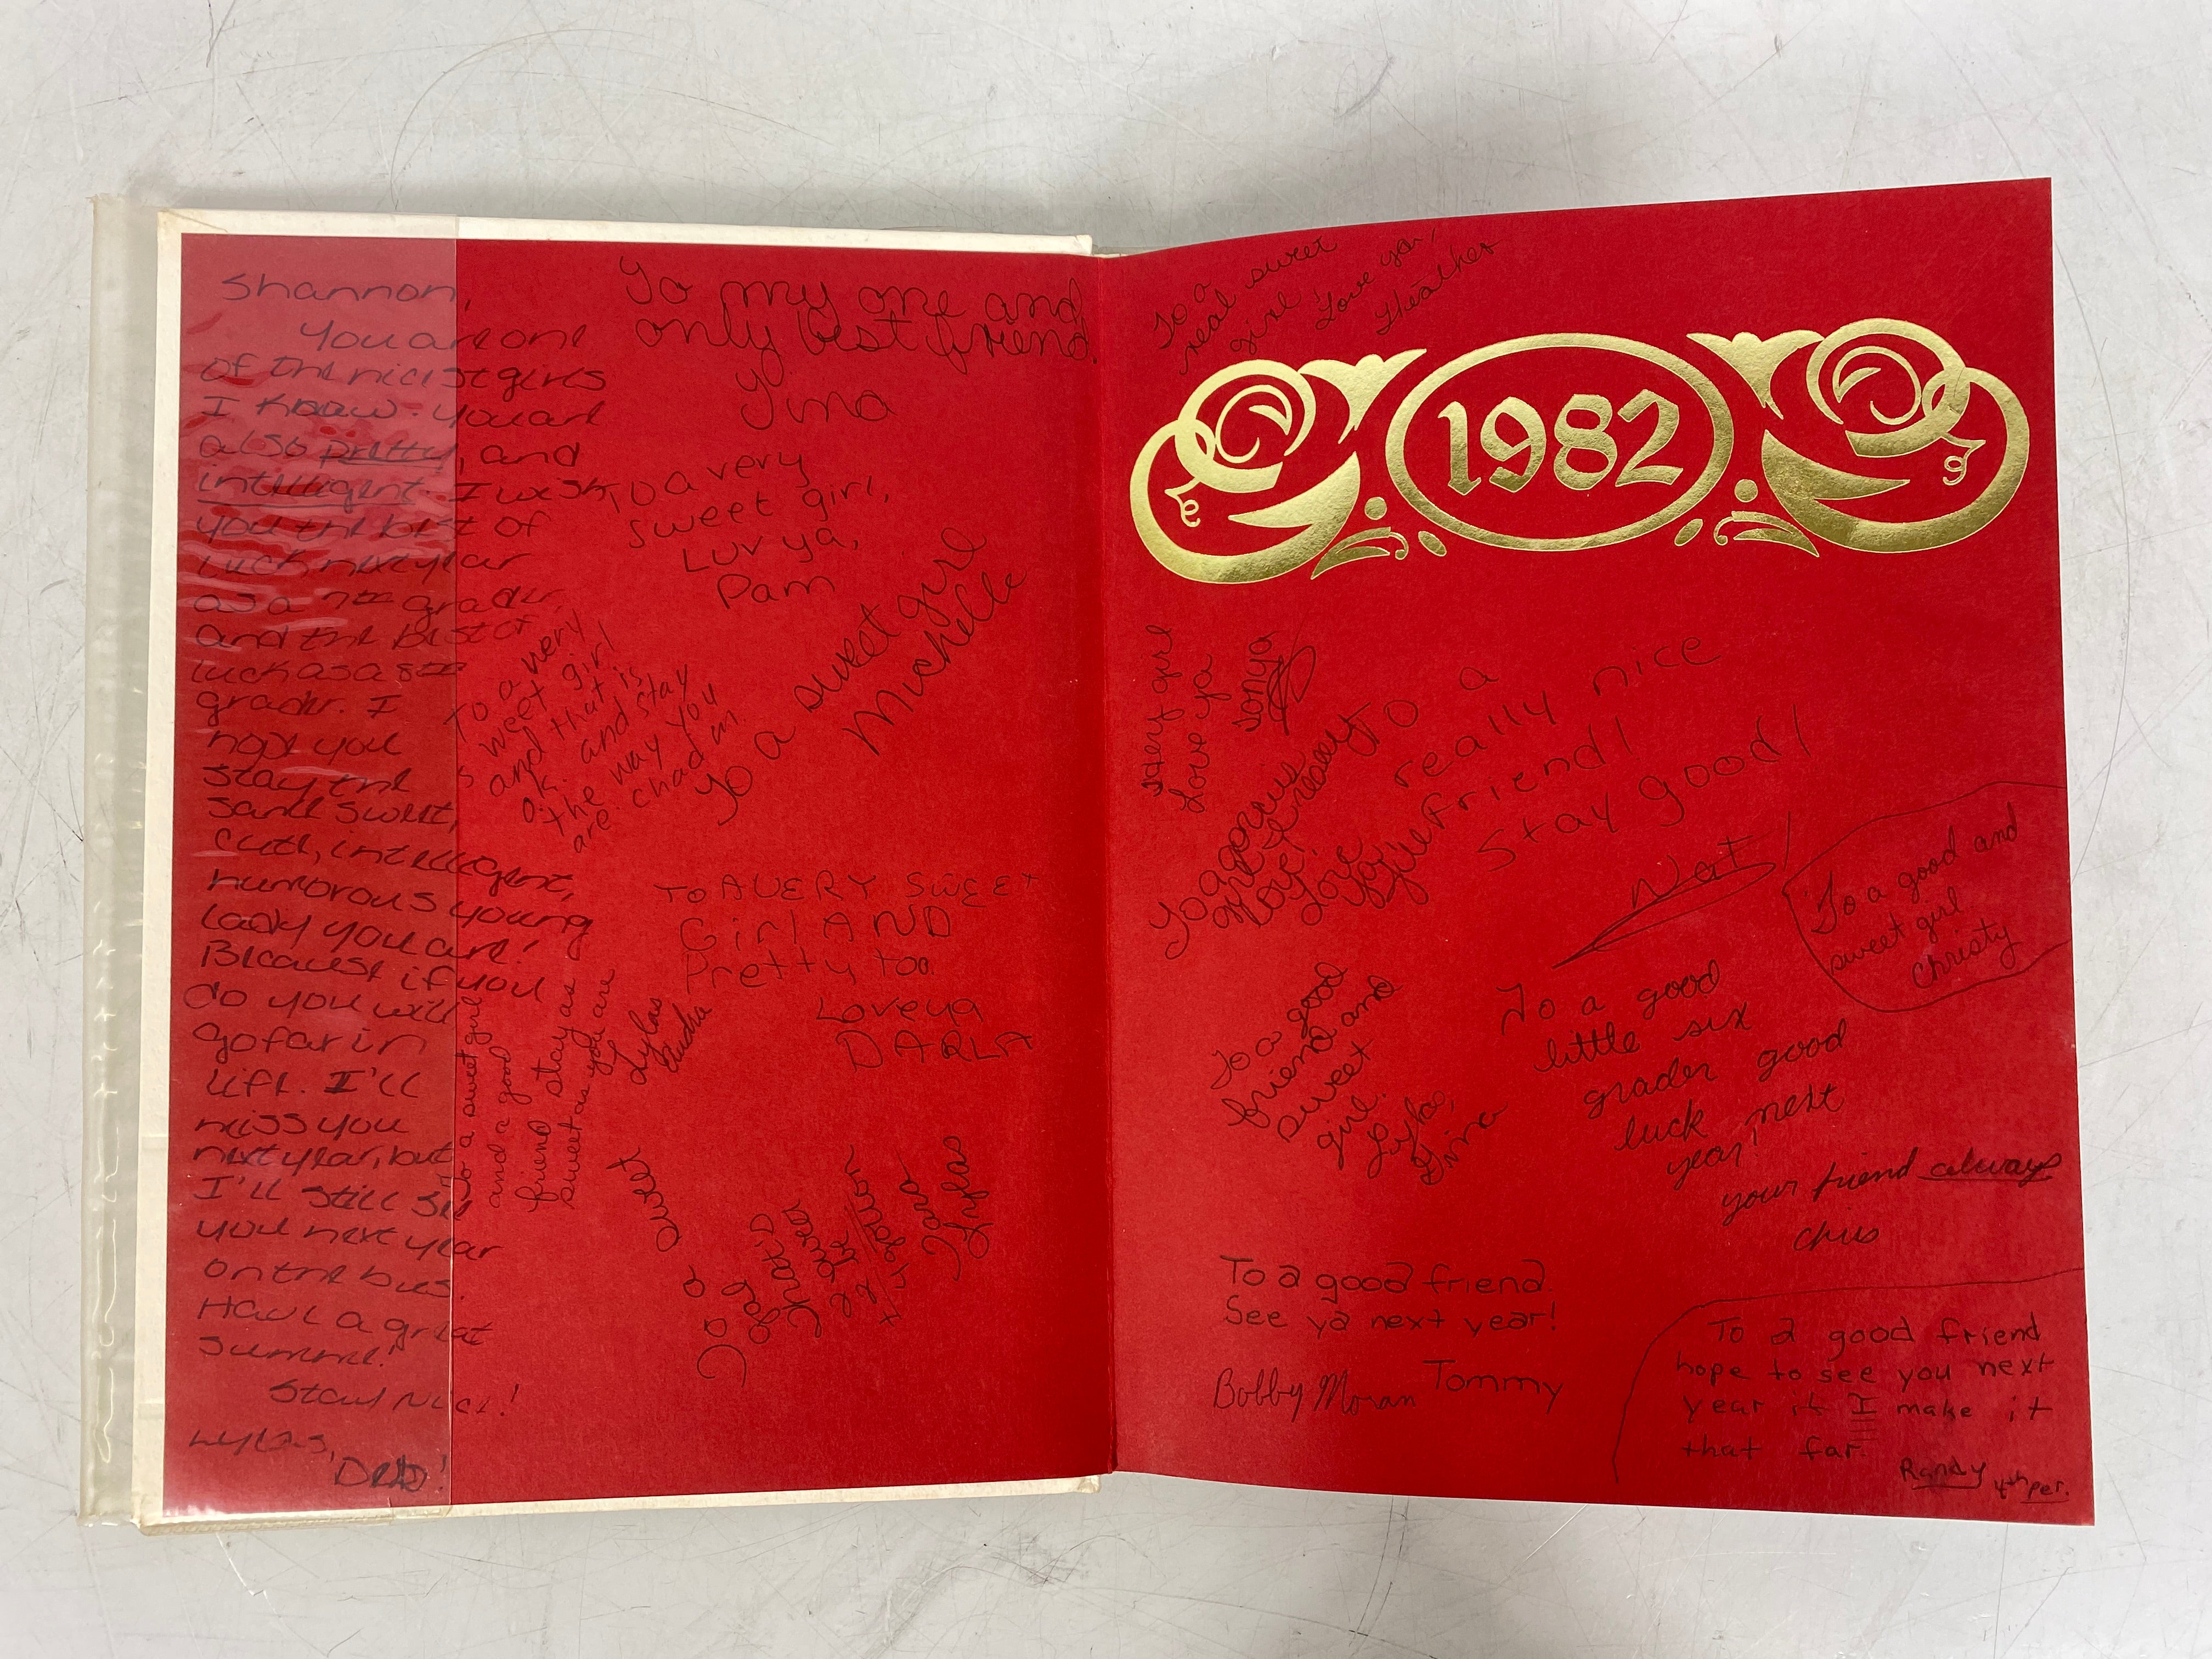 Shannon,
You are one
of the nicest girls
I know. You are
also pretty, and
intelligent. I wish
you the best of
luck next year
as a 7th grader,
and the best of
luck as a 8th
grader. I
hope you
stay the
same sweet,
cute, intelligent,
humorous young
lady you are!
Because if you
do you will
go far in
life. I'll
miss you
next year, but
I'll still see
you next year
on the bus.
Have a great
summer!
Stay Nice!
Lylas,
Deb!
To my one and
only best friend.
Tina
To a very
sweet girl,
Luv ya,
Pam
To a very
sweet girl
and that is
ok. and stay
the way you
are. chad m.
To a sweet girl
Michelle
TO A VERY SWEET
Girl AND
Pretty too
Love ya
DARLA
To a sweet girl
and a good
friend stay as
sweet as you are
Lylas
To a sweet
gal
That's
Tara
Lylas
To a
real sweet
girl
Love ya,
Heather
1982
Love ya
Sonya
To a
really nice
friend!
Stay good!
Nat
To a gorgeous
Love
To a good and
sweet girl
Christy
To a good
friend and
sweet
girl.
Lylas,
Tina
To a good
little six
grader good
luck next
year,
your friend always
Chris
To a good friend.
See ya next year!
Bobby Moran
Tommy
To a good friend
hope to see you next
year if I make it
that far.
Randy
4th per.